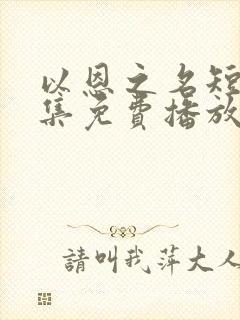 以恩之名短
集免費播放
請叫我萍大人